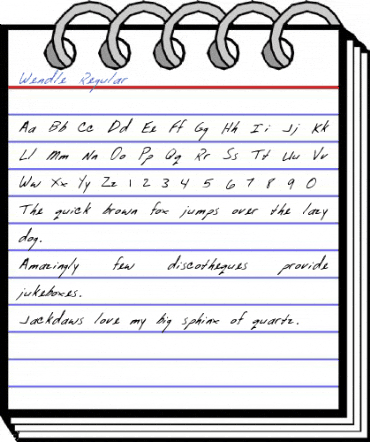 Wendle Regular
Aa Bb Cc Dd Ee Ff Gg Hh Ii Jj Kk
Ll Mm Nn Oo Pp Qq Rr Ss Tt Uu Vv
Ww Xx Yy Zz 1 2 3 4 5 6 7 8 9 0
The quick brown fox jumps over the lazy
dog.
Amazingly few discotheques provide
jukeboxes.
Jackdaws love my big sphinx of quartz.